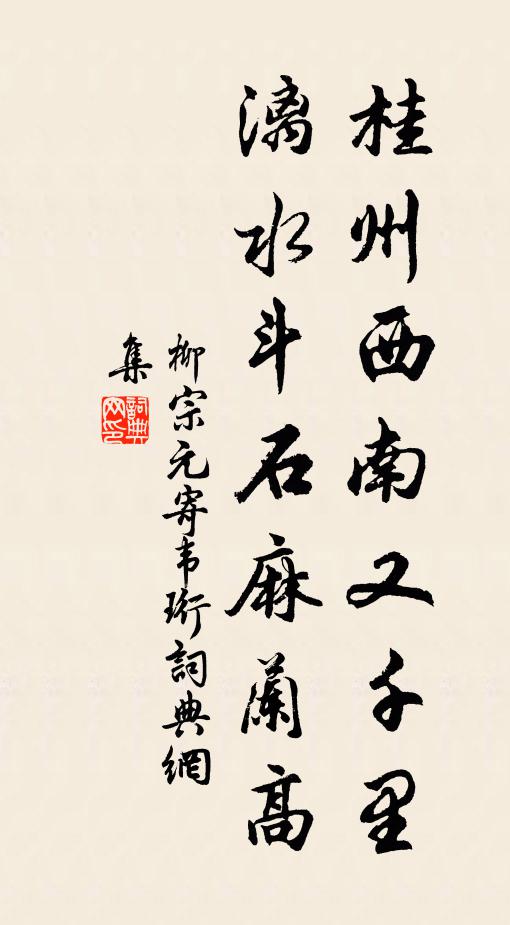 桂州西南又千里
漓水斗石麻蘭高
柳宗元寄韦珩詞典網
集
詞典网印